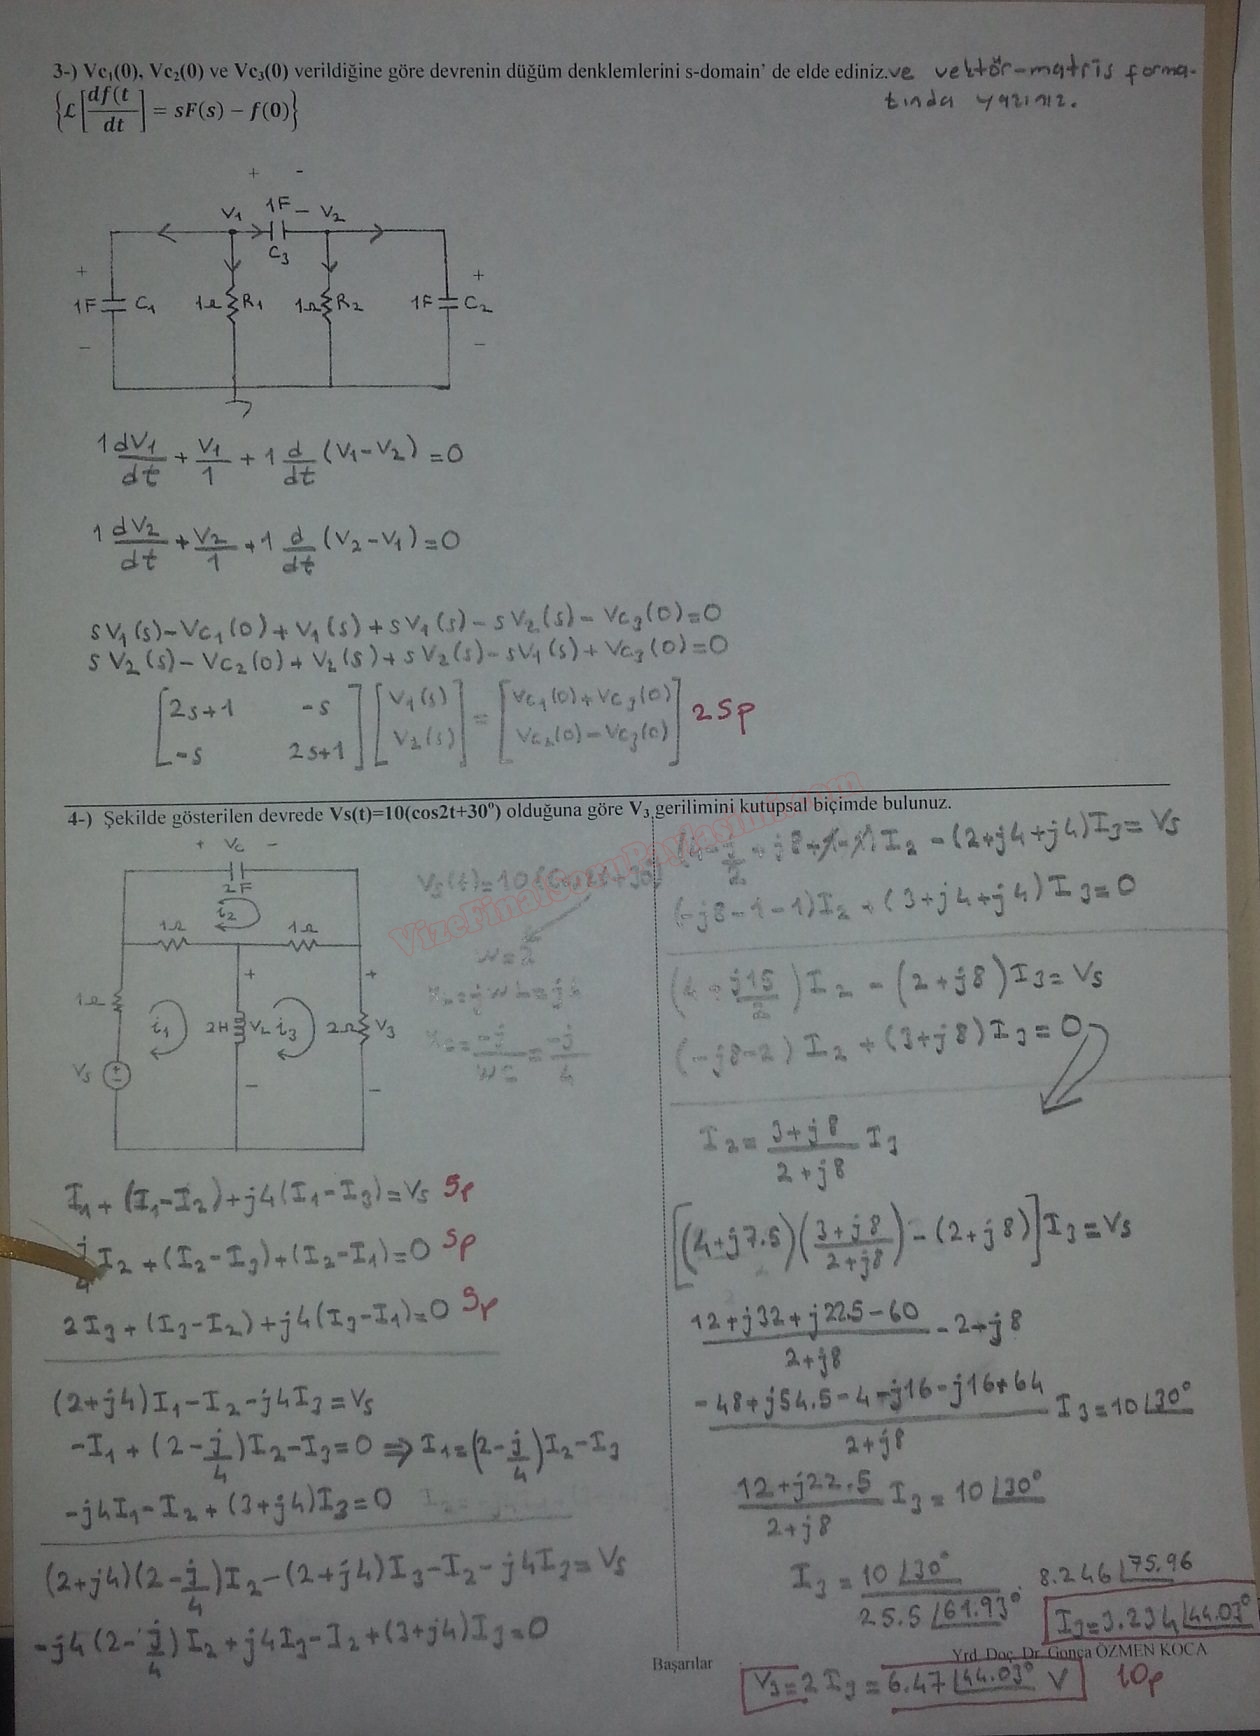 3-) Vc₁(0), Vc₂(0) ve Vc₃(0) verildiğine göre devrenin düğüm denklemlerini s-domain' de elde ediniz. ve vektör-matris forma-
tında yazınız.
{ℒ[df(t/dt] = sF(s) − f(0)}
+ -
1F
V1 - V2
C3
+ +
1F C1 1Ω R1 1Ω R2 1F C2
- -
1 dV1/dt + V1/1 + 1 d/dt (V1-V2) = 0
1 dV2/dt + V2/1 + 1 d/dt (V2-V1) = 0
sV1(s) - Vc1(0) + V1(s) + sV1(s) - sV2(s) - Vc3(0) = 0
sV2(s) - Vc2(0) + V2(s) + sV2(s) - sV1(s) + Vc3(0) = 0
[2s+1 -s] [V1(s)] = [Vc1(0)+Vc3(0)] 25p
[-s 2s+1] [V2(s)] [Vc2(0)-Vc3(0)]
4-) Şekilde gösterilen devrede Vs(t)=10(cos2t+30°) olduğuna göre V₃ gerilimini kutupsal biçimde bulunuz.
VizeFinalSoruPaylasimi.com
+ Vc -
2F
i2
1Ω 1Ω
+ +
1Ω i1 2H VL i3 2Ω V3
Vs
- -
Vs(t)=10(cos2t+30)
w=2
XL=jwL=j4
Xc=-j/wc=-j/4
I1+(I1-I2)+j4(I1-I3)=Vs 5p
j/4 I2+(I2-I3)+(I2-I1)=0 5p
2I3+(I3-I2)+j4(I3-I1)=0 5p
(2+j4)I1-I2-j4I3=Vs
-I1+(2-j/4)I2-I3=0 ⇒ I1=(2-j/4)I2-I3
-j4I1-I2+(3+j4)I3=0
(2+j4)(2-j/4)I2-(2+j4)I3-I2-j4I3=Vs
-j4(2-j/4)I2+j4I3-I2+(3+j4)I3=0
(4-j/2+j8+1-1)I2-(2+j4+j4)I3=Vs
(-j8-1-1)I2+(3+j4+j4)I3=0
(4+j15/2)I2-(2+j8)I3=Vs
(-j8-2)I2+(3+j8)I3=0
I2=3+j8/2+j8 I3
[(4+j7.5)(3+j8/2+j8)-(2+j8)]I3=Vs
12+j32+j22.5-60/2+j8 -2+j8
-48+j54.5-4-j16-j16+64/2+j8 I3=10∠30°
12+j22.5/2+j8 I3=10∠30°
I3=10∠30°/25.5∠61.93° . 8.246∠75.96
I3=3.234∠44.03°
Yrd. Doç. Dr. Gonca ÖZMEN KOCA
Başarılar
V3=2I3=6.47∠44.03° V 10p